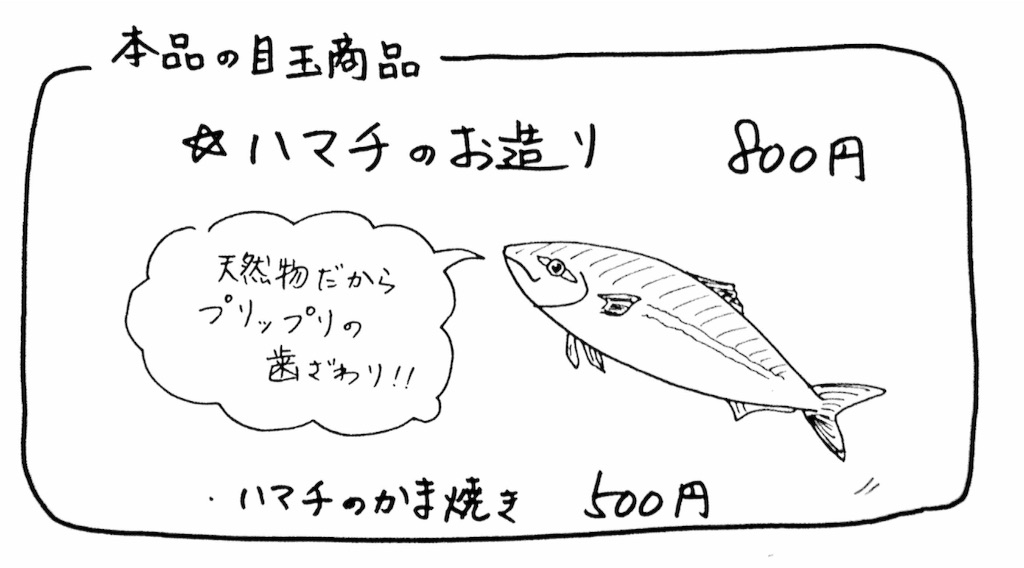 本品の目玉商品
☆ハマチのお造り 800円
天然物だから
プリップリの
歯ざわり!!
・ハマチのかま焼き 500円